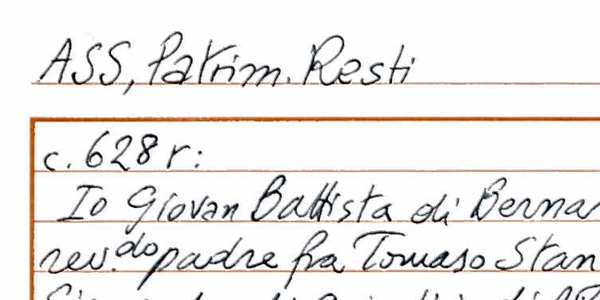 ASS, Patrim. Resti
c. 628 r:
Io Giovan Battista di Berna
rev.do padre fra Tomaso Stan